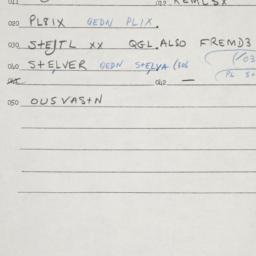 020 PL8IX GEDN PLIX.
030 S+EJTL XX QGL.ALSO FREMD3
040 S+ELVER GEDN S+ELVA
PL S+
040 —
050 OUSVAS+N